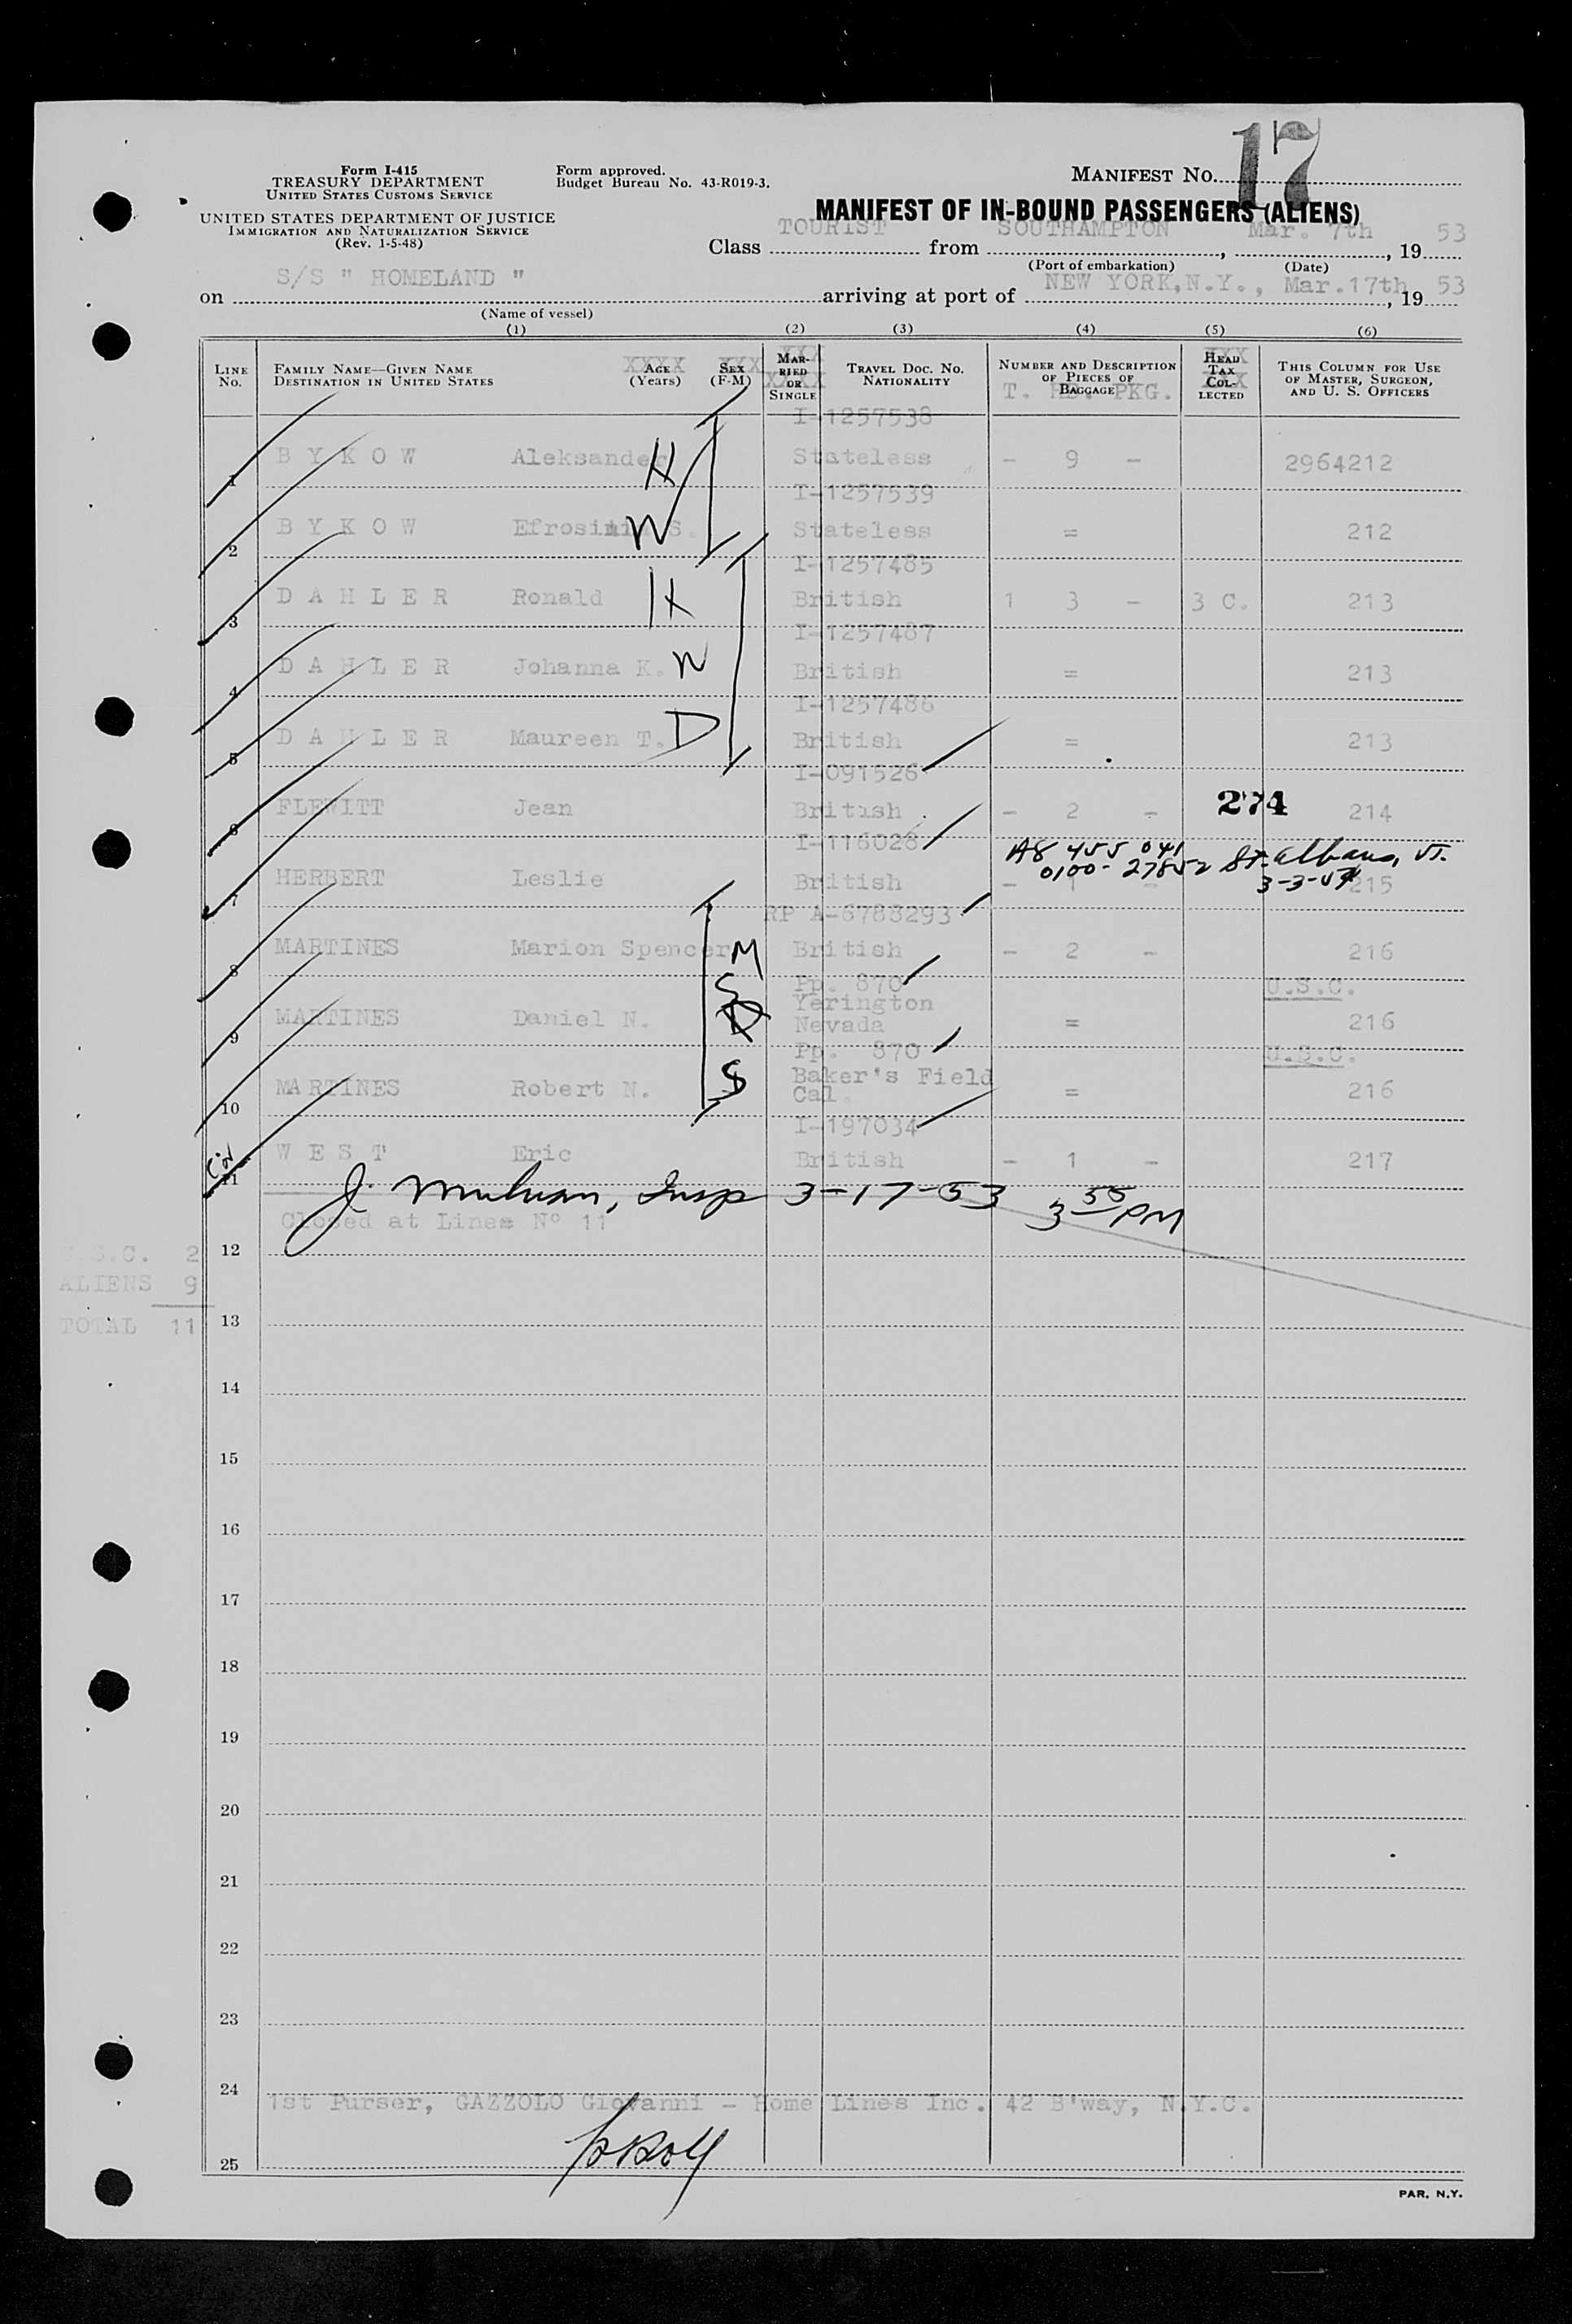 17
Form I-415
TREASURY DEPARTMENT
UNITED STATES CUSTOMS SERVICE
Form approved.
Budget Bureau No. 43-R019-3.
MANIFEST NO.
UNITED STATES DEPARTMENT OF JUSTICE
IMMIGRATION AND NATURALIZATION SERVICE
(Rev. 1-5-48)
MANIFEST OF IN-BOUND PASSENGERS (ALIENS)
Class TOURIST from SOUTHAMPTON, Mar. 7th, 1953
(Port of embarkation) (Date)
on S/S " HOMELAND " arriving at port of NEW YORK, N.Y., Mar.17th, 1953
(Name of vessel)
(1) (2) (3) (4) (5) (6)
LINE NO.
FAMILY NAME—GIVEN NAME
DESTINATION IN UNITED STATES
XXXX
AGE
(Years)
XXX
SEX
(F-M)
MARRIED OR SINGLE
TRAVEL DOC. NO.
NATIONALITY
NUMBER AND DESCRIPTION OF PIECES OF BAGGAGE
T. HB. PKG.
HEAD TAX COLLECTED
THIS COLUMN FOR USE OF MASTER, SURGEON, AND U. S. OFFICERS
I-1257538
1 B Y K O W Aleksander H Stateless - 9 - 2964212
I-1257539
2 B Y K O W W Stateless = 212
I-1257485
3 D A H L E R Ronald H British 1 3 - 3 C. 213
I-1257487
4 D A H L E R Johanna K. W British = 213
I-1257486
5 D A H L E R Maureen T. D British = 213
I-091526
6 FLEWITT Jean British - 2 - 274 214
I-116028 A8 455 041
0100-27852 St. Albans, Vt.
3-3-54
7 HERBERT Leslie British - 1 - 215
RP A-6788293
8 MARTINES Marion Spencer M British - 2 - 216
Pp. 870 U.S.C.
9 MARTINES Daniel N. S Yerington Nevada = 216
Pp. 870 U.S.C.
10 MARTINES Robert N. S Baker's Field Cal. = 216
I-197034
11 W E S T Eric British - 1 - 217
J. Insp 3-17-53 3 55 PM
Closed at Lines Nº 11
U.S.C. 2
12
ALIENS 9
TOTAL 11
13
14
15
16
17
18
19
20
21
22
23
24
1st Purser, GAZZOLO Giovanni - Home Lines Inc. 42 B'way, N.Y.C.
25
PAR, N.Y.